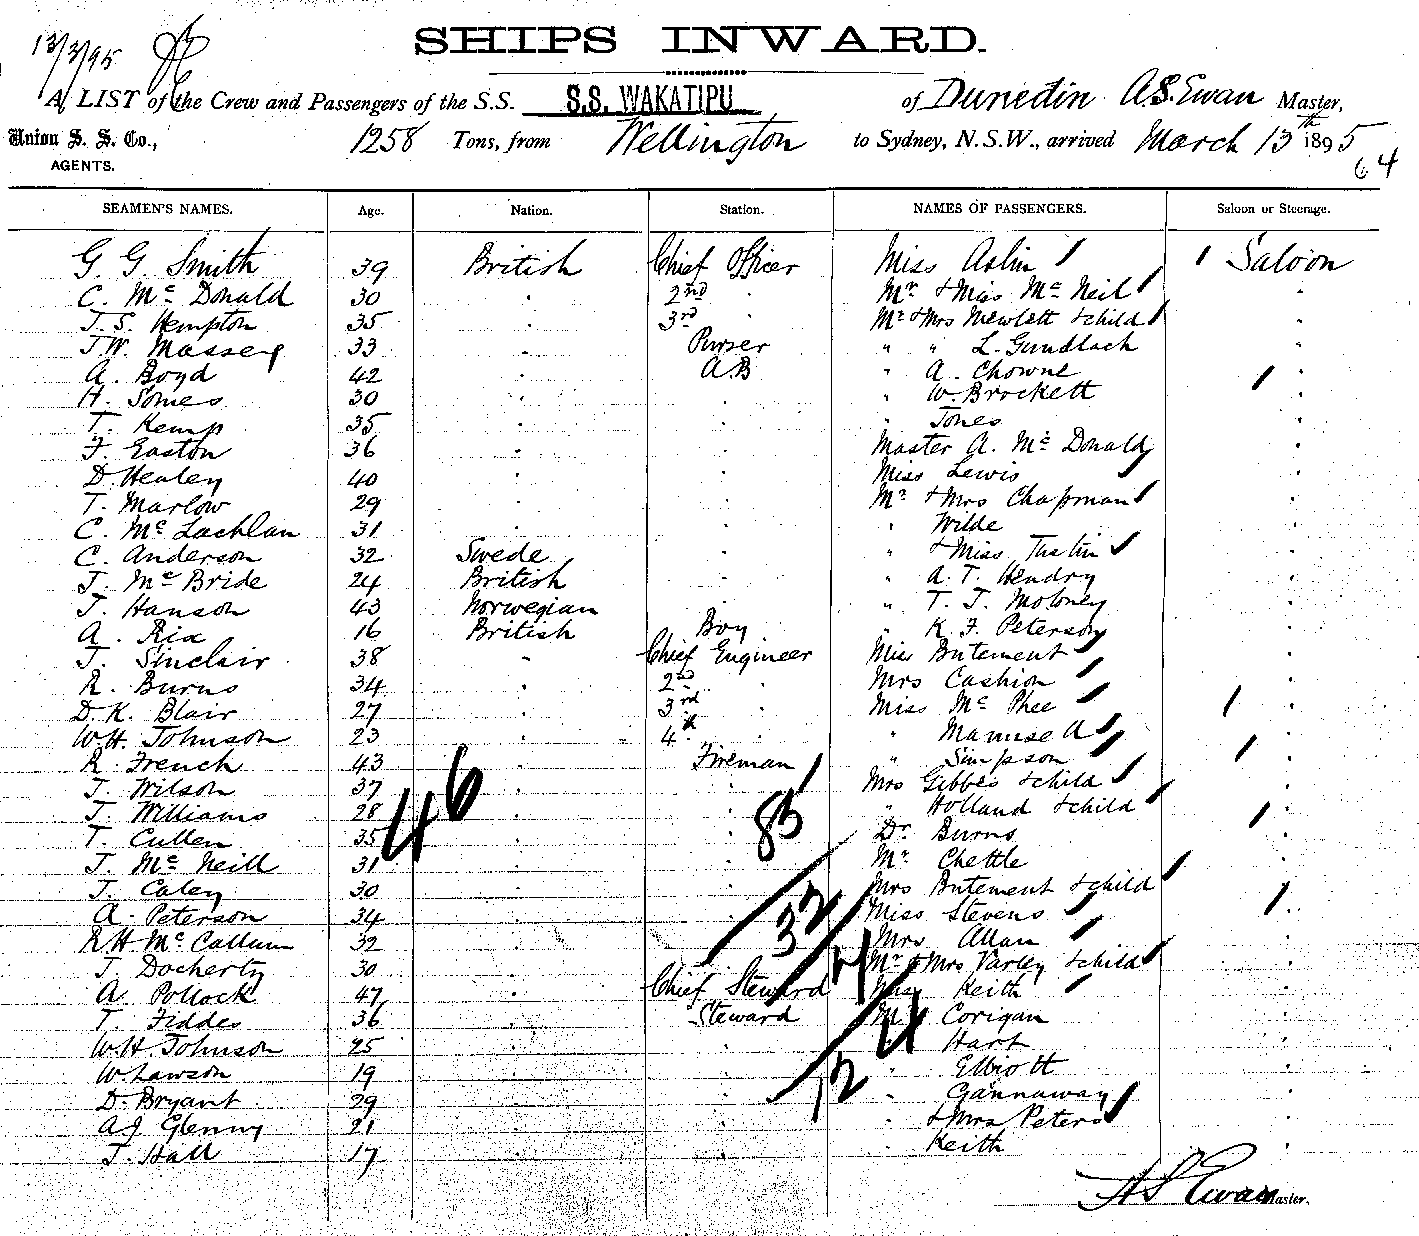 13/3/95
SHIPS INWARD.
A LIST of the Crew and Passengers of the S.S. S.S. WAKATIPU of Dunedin A.S. Ewan Master,
Union S. S. Co., 1258 Tons, from Wellington to Sydney, N.S.W., arrived March 13th 1895
AGENTS.
64
SEAMEN'S NAMES. Age. Nation. Station. NAMES OF PASSENGERS. Saloon or Steerage.
G. G. Smith 39 British Chief Officer Miss Aslin 1 Saloon
C. Mc Donald 30 " 2nd " Mr & Miss Mc Neil "
J. S. Hempton 35 " 3rd " Mr & Mrs Mewlett & child "
J. W. Massey 33 " Purser " " L. Gundlach "
A. Boyd 42 " AB " A. Chowne "
H. Somes 30 " " " W. Brockett "
T. Kemp 35 " " " Jones "
F. Easton 36 " " Master A. Mc Donald "
D. Healey 40 " " Miss Lewis "
T. Marlow 29 " " Mr & Mrs Chapman "
C. Mc Lachlan 31 " " " Wilde "
C. Anderson 32 Swede " " & Miss Tustin "
J. Mc Bride 24 British " " A. T. Hendry "
J. Hanson 43 Norwegian " " T. J. Moloney "
A. Rix 16 British Boy " K. F. Peterson "
J. Sinclair 38 " Chief Engineer Miss Butement "
R. Burns 34 " 2nd " Mrs Cashion "
D. K. Blair 27 " 3rd " Miss Mc Phee "
W. H. Johnson 23 " 4th " " A "
R. French 43 " Fireman " Simpson "
J. Wilson 37 " " Mrs Gibbes & child "
J. Williams 28 " " " Holland & child "
T. Cullen 35 " " Dr Burns "
J. Mc Neill 31 " " Mr Chettle "
J. Caley 30 " " Mrs Butement & child "
A. Peterson 34 " " Miss Stevens "
R H Mc Callum 32 " " Mrs Allan "
J. Docherty 30 " " Mr & Mrs Varley & child "
A. Pollock 47 " Chief Steward Miss Keith "
T. Fiddes 36 " Steward Mr Corigan "
W. H. Johnson 25 " " " Hart "
W. Lawson 19 " " " Elliott "
D. Bryant 29 " " " Gannaway "
A J Glenny 21 " " " & Mrs Peters "
J. Hall 17 " " " Keith "
46
83
32
12
A S Ewan Master.